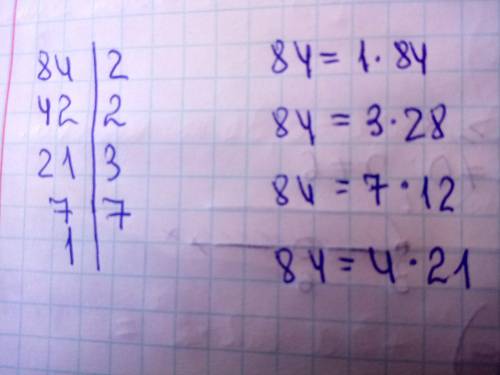 84 | 2
42 | 2
21 | 3
7 | 7
1 |
84 = 1 · 84
84 = 3 · 28
84 = 7 · 12
84 = 4 · 21